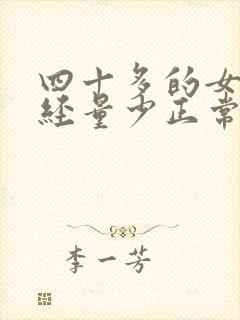 四十多的女
经量少正常
李一芳